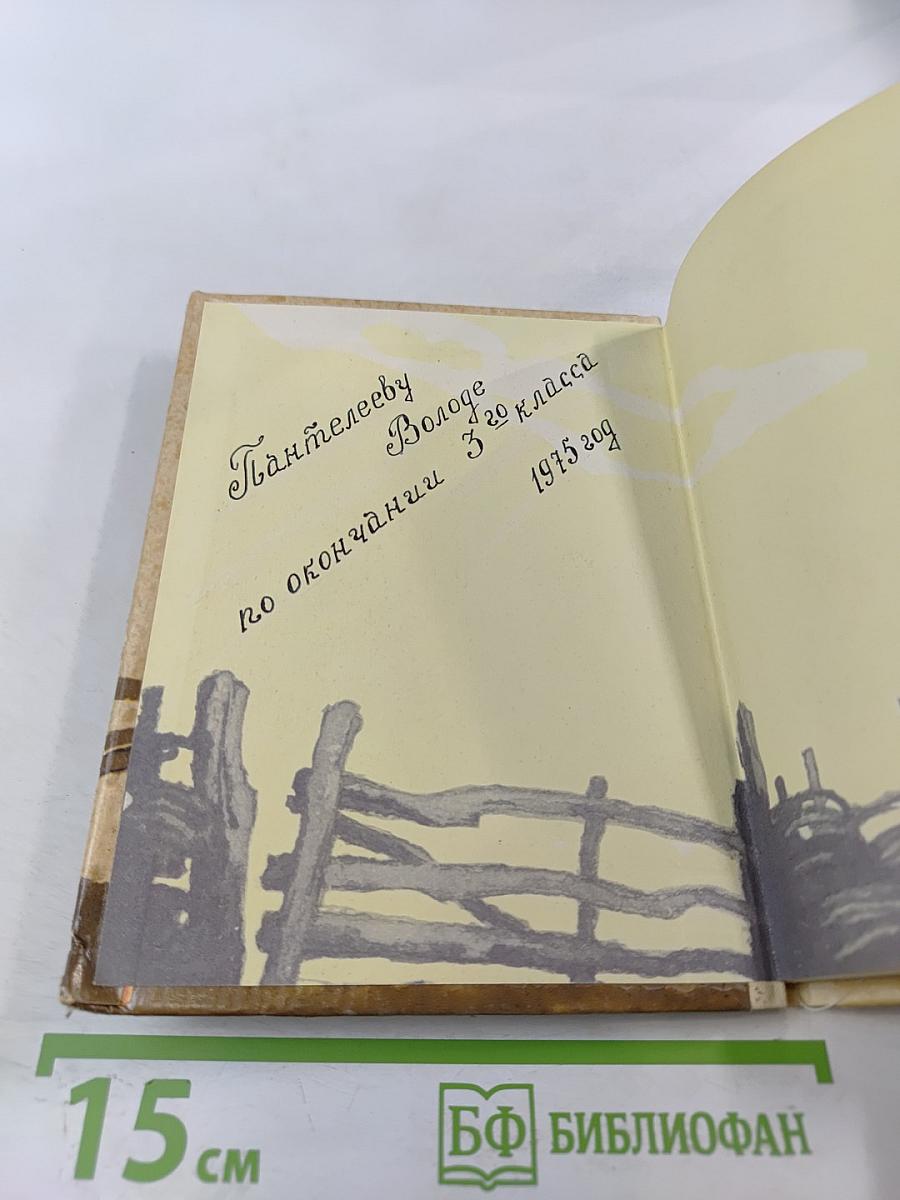 Пантелееву
Володе
по окончании 3го класса
1975 год
15 см
БФ БИБЛИОФАН